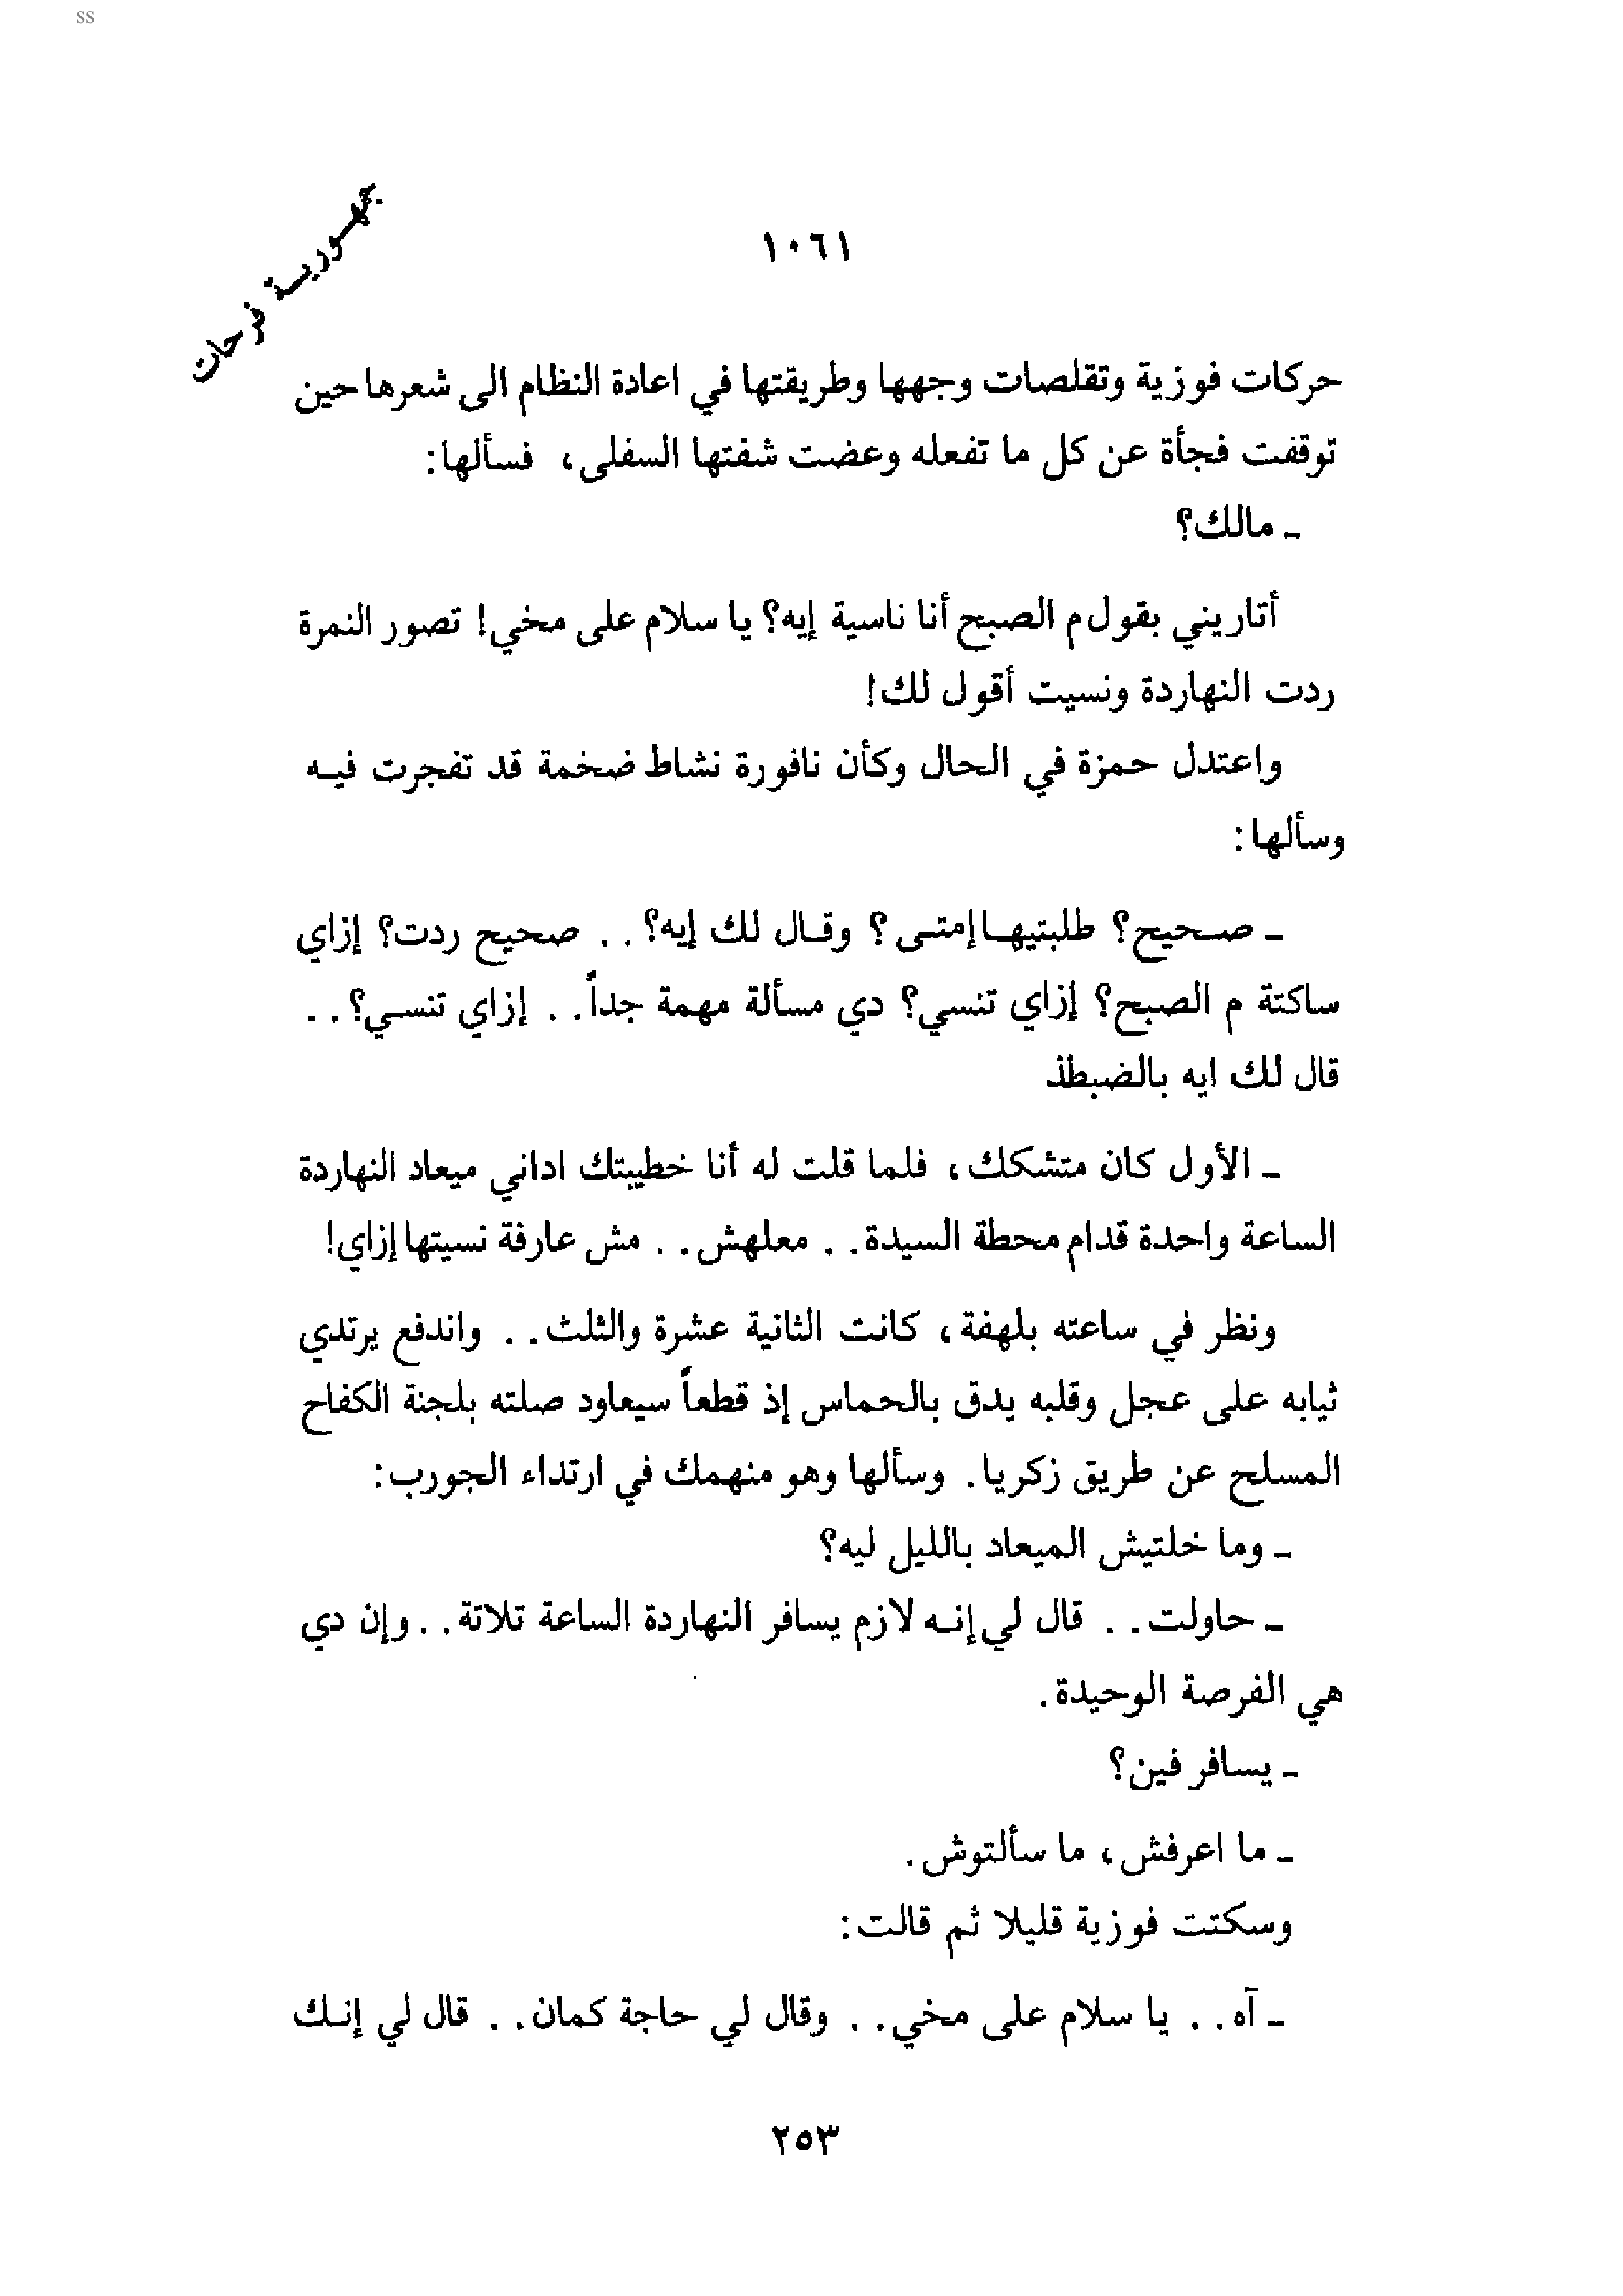 ss
جمهورية فرحات
١٠٦١
حركات فوزية وتقلصات وجهها وطريقتها في اعادة النظام الى شعرها حين
توقفت فجأة عن كل ما تفعله وعضت شفتها السفلى، فسألها:
ـ مالك؟
أتاريني بقول م الصبح أنا ناسية إيه؟ يا سلام على مخي! تصور النمرة
ردت النهاردة ونسيت أقول لك!
واعتدل حمزة في الحال وكأن نافورة نشاط ضخمة قد تفجرت فيه
وسألها:
ـ صحيح؟ طلبتيها إمتى؟ وقال لك إيه؟.. صحيح ردت؟ إزاي
ساكتة م الصبح؟ إزاي تنسي؟ دي مسألة مهمة جداً.. إزاي تنسي؟..
قال لك ايه بالضبطذ
ـ الأول كان متشكك، فلما قلت له أنا خطيبتك اداني ميعاد النهاردة
الساعة واحدة قدام محطة السيدة.. معلهش.. مش عارفة نسيتها إزاي!
ونظر في ساعته بلهفة، كانت الثانية عشرة والثلث.. واندفع يرتدي
ثيابه على عجل وقلبه يدق بالحماس إذ قطعاً سيعاود صلته بلجنة الكفاح
المسلح عن طريق زكريا. وسألها وهو منهمك في ارتداء الجورب:
ـ وما خلتيش الميعاد بالليل ليه؟
ـ حاولت.. قال لي إنه لازم يسافر النهاردة الساعة تلاتة.. وإن دي
هي الفرصة الوحيدة.
ـ يسافر فين؟
ـ ما اعرفش، ما سألتوش.
وسكتت فوزية قليلا ثم قالت:
ـ آه.. يا سلام على مخي.. وقال لي حاجة كمان.. قال لي إنك
٢٥٣